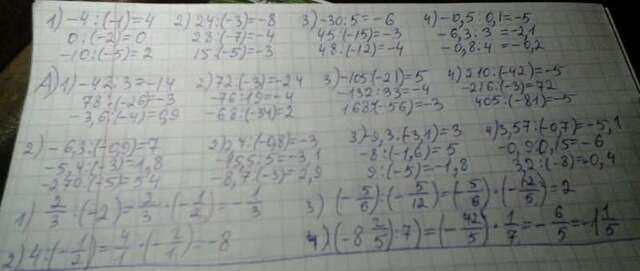 1) -4:(-1)=4 2) 24:(-3)=-8 3) -30:5=-6 4) -0,5:0,1=-5
0:(-2)=0 28:(-7)=-4 45:(-15)=-3 -6,3:3=-2,1
-10:(-5)=2 15:(-5)=-3 48:(-12)=-4 -0,8:4=-0,2
A) 1) -42:3=-14 2) 72:(-3)=-24 3) -105:(-21)=5 4) 210:(-42)=-5
78:(-26)=-3 -76:19=-4 -132:33=-4 -216:(-3)=72
-3,6:(-4)=0,9 -68:(-34)=2 168:(-56)=-3 405:(-81)=-5
2) -6,3:(-0,9)=7 2) 2,4:(-0,8)=-3 3) -9,3:(-3,1)=3 4) 3,57:(-0,7)=-5,1
-5,4:(-3)=1,8 -15,5:5=-3,1 -8:(-1,6)=5 -0,9:0,15=-6
-270:(-5)=54 -8,7:(-3)=2,9 9:(-5)=-1,8 3,2:(-8)=-0,4
1) 2/3:(-2)=2/3·(-1/2)=-1/3 3) (-5/6):(-5/12)=(-5/6)·(-12/5)=2
2) 4:(-1/2)=4/1·(-2/1)=-8 4) (-8 2/5):7)=(-42/5)·1/7=-6/5=-1 1/5